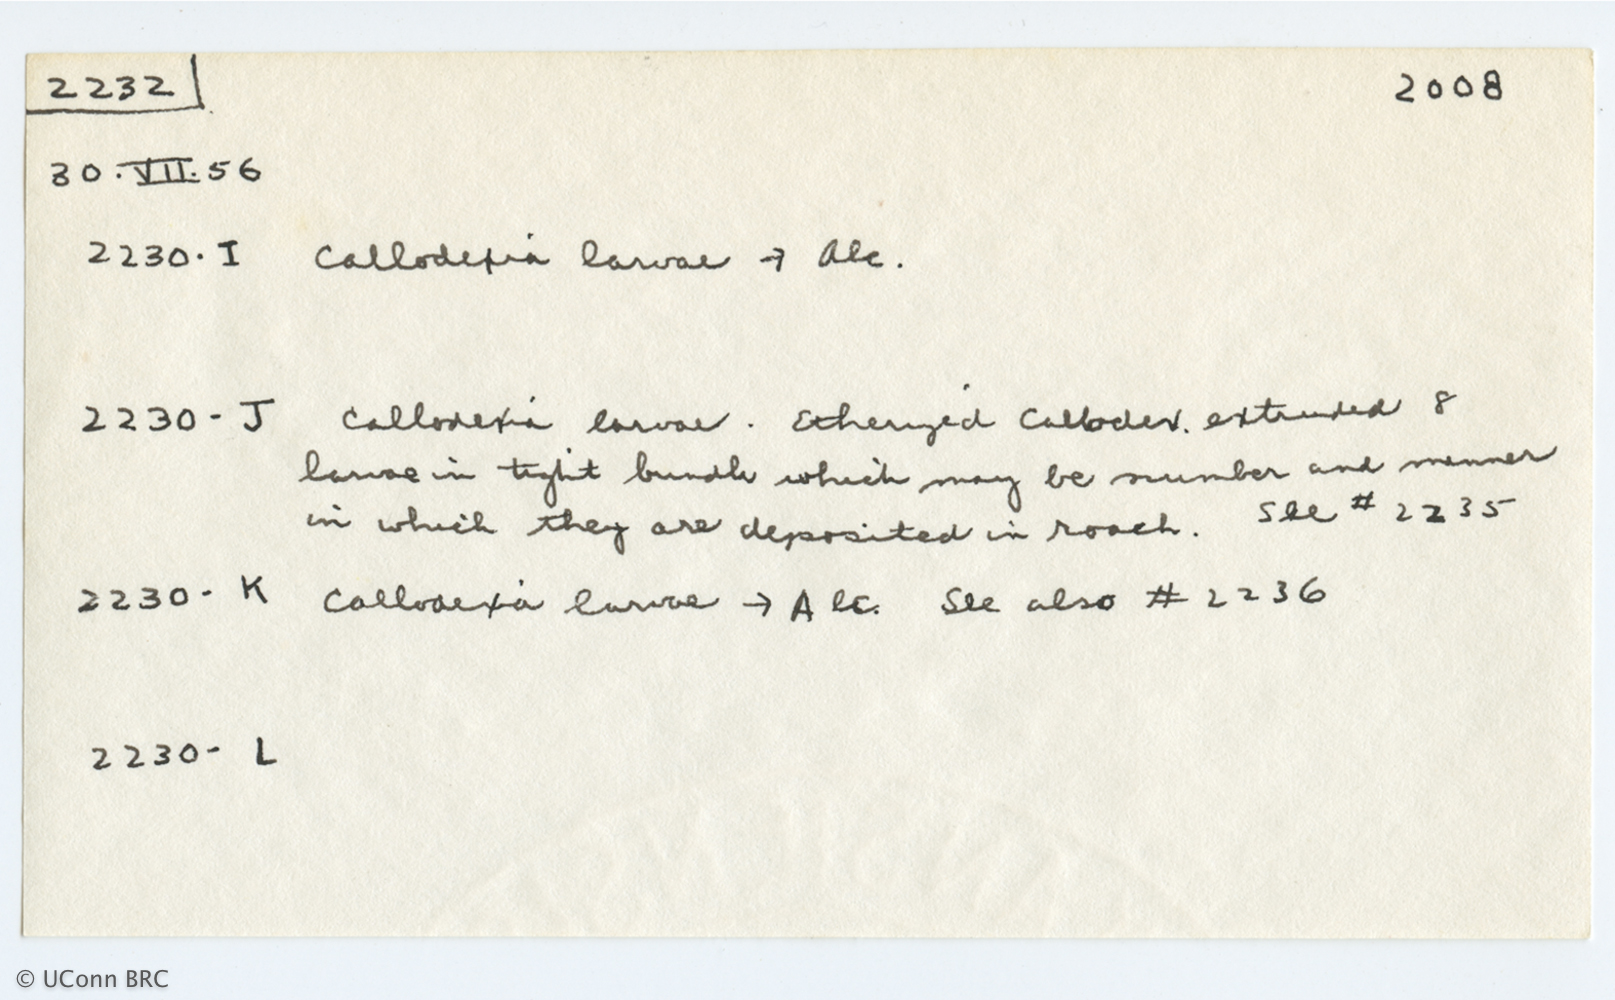 2232
2008
30.VII.56
2230.I Callodexia larvae → Alc.
2230-J Callodexia larvae. Etherized Callodex. extruded 8
larvae in tight bundle which may be number and manner
in which they are deposited in roach. See # 2235
2230-K Callodexia larvae → Alc. See also # 2236
2230-L
© UConn BRC